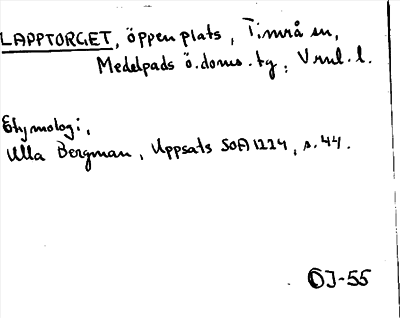 LAPPTORGET, öppen plats, Timrå sn,
Medelpads ö. doms. tg, Vnrl. l.
Etymologi,
Ulla Bergman, Uppsats SOA 1224, s. 44.
OJ-55